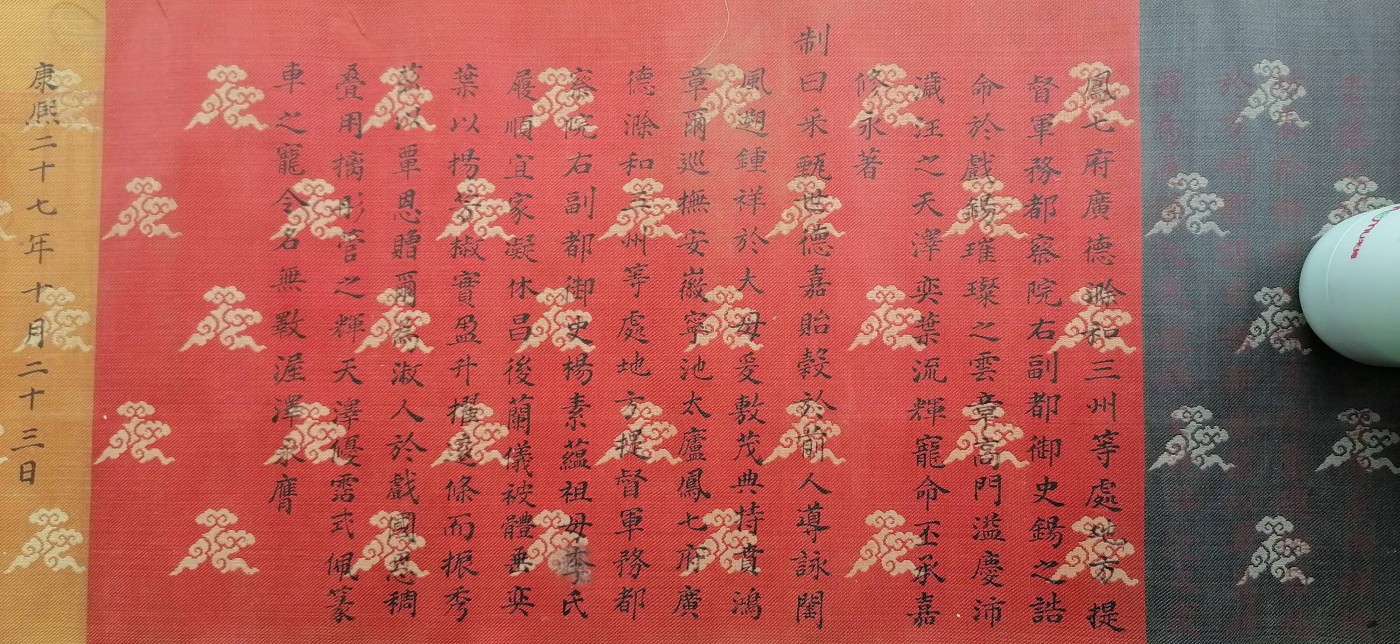 鳳七府廣德滁和三州等處地方提
督軍務都察院右副都御史錫之誥
命於戲錫璀璨之雲章高門溢慶沛
濊汪之天澤奕葉流輝寵命丕承嘉
修永著
制曰采甄世德嘉貽穀於前人導詠閨
風遡鍾祥於大母爰敷茂典特賁鴻
章爾巡撫安徽寧池太廬鳳七府廣
德滁和三州等處地方提督軍務都
察院右副都御史楊素蘊祖母季氏
履順宜家凝休昌後蘭儀被體垂奕
葉以揚芬椒實盈升擢遠條而振秀
茲以覃恩贈爾為淑人於戲國恩稠
疊用摛彤管之輝天澤優霑式佩篆
車之寵令名無斁渥澤永膺
康熙二十七年十月二十三日